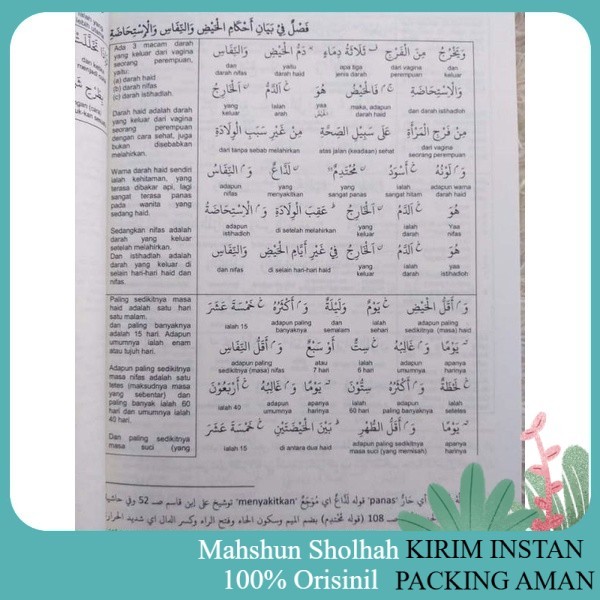 فَصْلٌ فِيْ بَيَانِ أَحْكَامِ الْحَيْضِ وَالنِّفَاسِ وَالْاِسْتِحَاضَةِ
Ada 3 macam darah
yang keluar dari vagina
seorang perempuan,
yaitu:
(a) darah haid
(b) darah nifas
(c) darah istihadlah.
Darah haid adalah darah
yang keluar dari vagina
seorang perempuan
dengan cara sehat, juga
bukan disebabkan
melahirkan.
Warna darah haid sendiri
ialah kehitaman, yang
terasa dibakar api, lagi
sangat terasa panas
pada wanita yang
sedang haid.
Sedangkan nifas adalah
darah yang keluar
setelah melahirkan.
Dan istihadlah adalah
darah yang keluar di
selain hari-hari haid dan
nifas.
وَيَخْرُجُ مِنَ الْفَرْجِ ثَلَاثَةُ دِمَاءٍ دَمُ الْحَيْضِ وَالنِّفَاسِ
dan keluar dari vagina apa tiga jenis darah yaitu darah haid dan darah nifas
وَالْاِسْتِحَاضَةِ فَالْحَيْضُ هُوَ اَلدَّمُ اَلْخَارِجُ
dan darah istihdlah maka, adapun darah haid ialah arah yang keluar
مِنْ فَرْجِ الْمَرْأَةِ عَلَى سَبِيْلِ الصِّحَّةِ مِنْ غَيْرِ سَبَبِ الْوِلَادَةِ
dari vagina seorang perempuan atas jalan (keadaan) sehat dan tanpa sebab melahirkan
وَلَوْنُهُ أَسْوَدُ مُحْتَدِمٌ لَذَّاعٌ وَالنِّفَاسُ
adapun warna darah haid ialah hitam yang sangat hitam yang menyakitkan adapun nifas
هُوَ اَلدَّمُ اَلْخَارِجُ عَقِبَ الْوِلَادَةِ وَالْاِسْتِحَاضَةُ
Yaa nifas ialah darah yang keluar di setelah melahirkan adapun istihadloh
هُوَ اَلدَّمُ اَلْخَارِجُ فِيْ غَيْرِ أَيَّامِ الْحَيْضِ وَالنِّفَاسِ
yaa istihdloh ialah darah yang keluar di selain hari-hari haid dan nifas
Paling sedikitnya masa
haid adalah satu hari
satu malam.
dan paling banyaknya
adalah 15 hari. Adapun
umumnya ialah enam
atau tujuh hari.
Adapun paling sedikitnya
masa nifas adalah satu
tetes (maksudnya masa
yang sebentar) dan
paling banyak ialah 60
hari dan umumnya ialah
40 hari.
Dan paling sedikitnya
masa suci (yang
وَأَقَلُّ الْحَيْضِ يَوْمٌ وَلَيْلَةٌ وَأَكْثَرُهُ خَمْسَةَ عَشَرَ
adapun paling sedikitnya (masa) haid ialah sehari dan semalam adapun paling banyaknya ialah 15
يَوْمًا وَغَالِبُهُ سِتٌّ أَوْ سَبْعٌ وَأَقَلُّ النِّفَاسِ
apanya harinya adapun umumnya ialah 6 hari atau 7 hari adapun paling sedikitnya (masa) nifas
لَحْظَةٌ وَأَكْثَرُهُ سِتُّوْنَ يَوْمًا وَغَالِبُهُ أَرْبَعُوْنَ
ialah setetes adapun paling banyaknya ialah 60 hari apanya harinya adapun umumnya ialah 40
يَوْمًا وَأَقَلُّ الطُّهْرِ بَيْنَ الْحَيْضَتَيْنِ خَمْسَةَ عَشَرَ
apanya harinya adapun paling sedikitnya masa suci (yang memisah) di antara dua haid ialah 15
أي حَارٌّ 'panas' قوله لَذَّاعٌ اي مُوْجِعٌ 'menyakitkan' توشيخ على إبن قاسم صـ 52 وفي حاشية
صـ 108 (قوله مُحْتَدِم) بضم الميم وسكون الحاء وفتح الراء وكسر الدال أي شديد الحرارة
Mahshun Sholhah KIRIM INSTAN
100% Orisinil PACKING AMAN